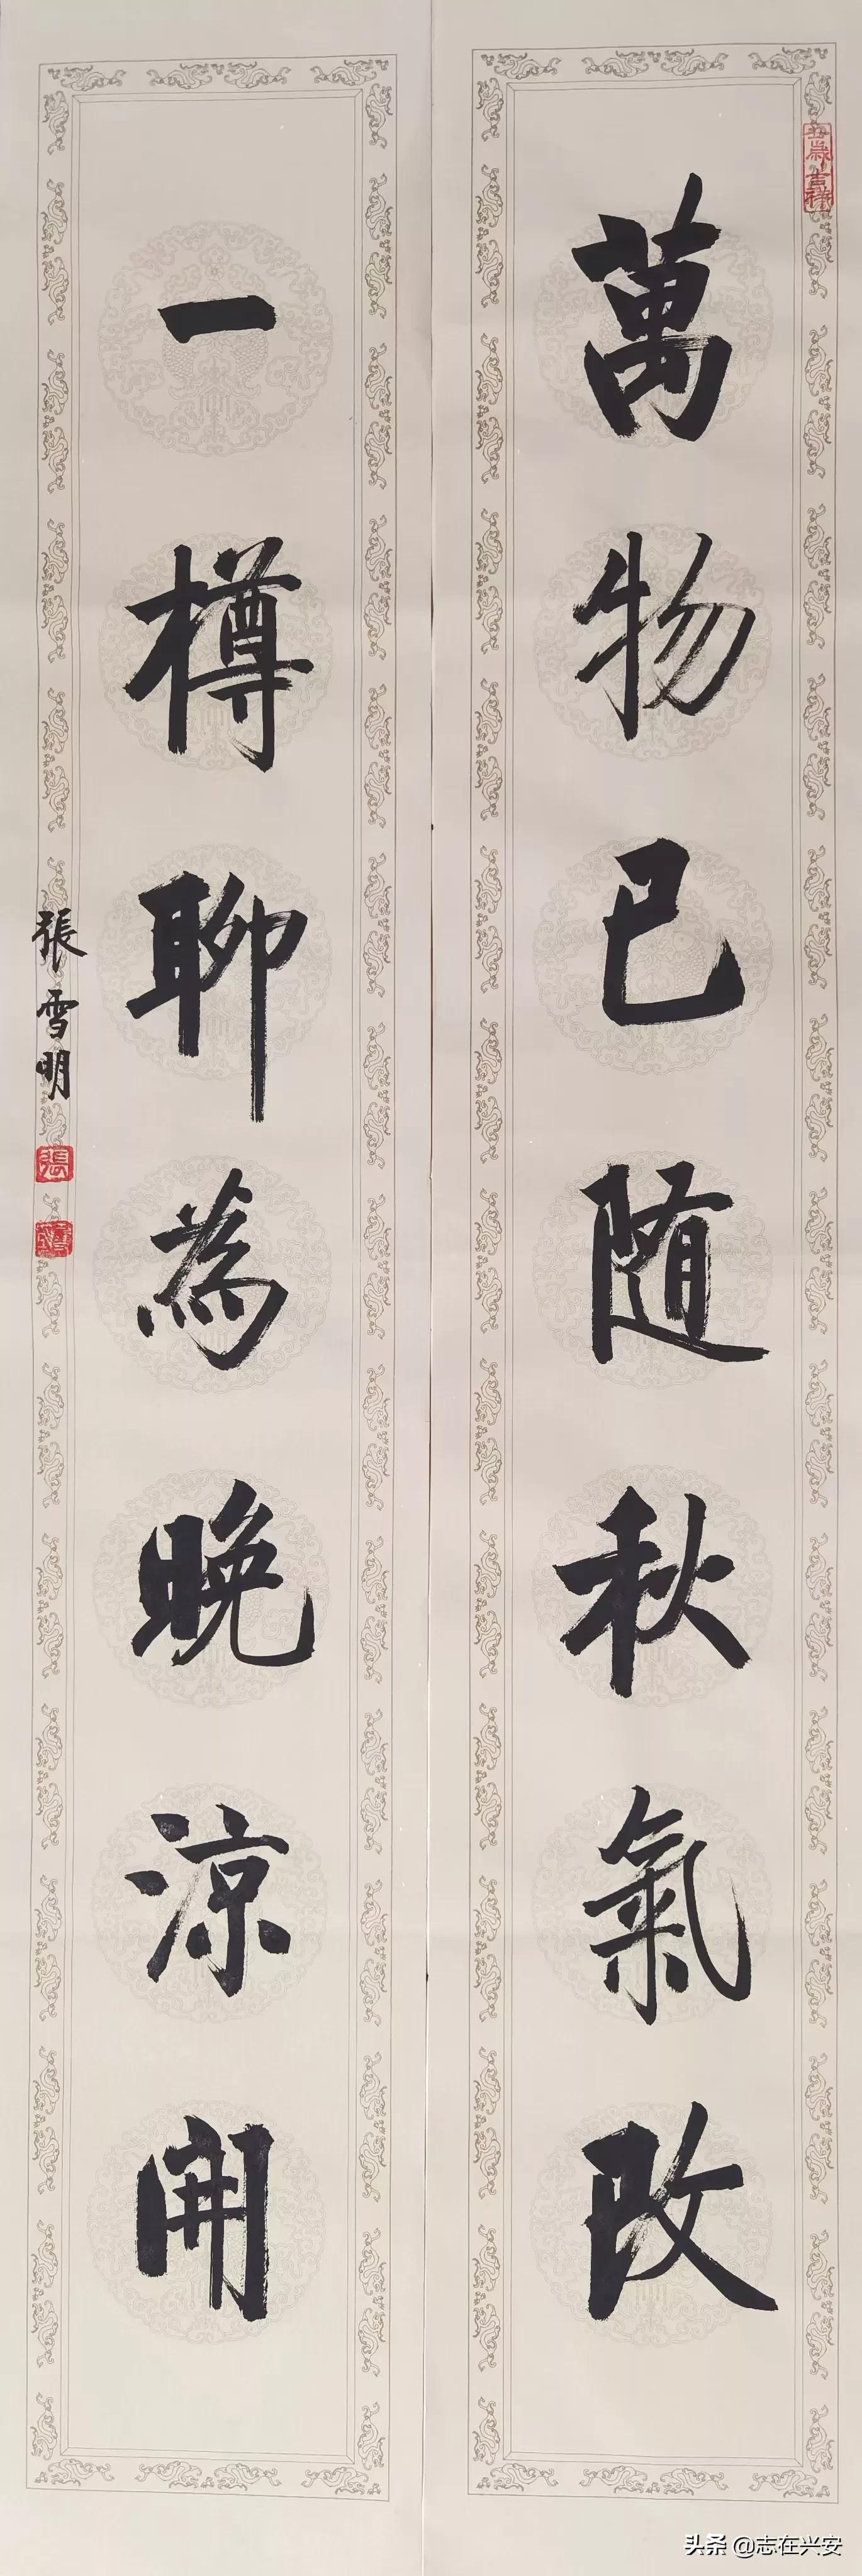 萬物已随秋氣改
一樽聊為晚涼開
張雪明
張
头条 @志在兴安